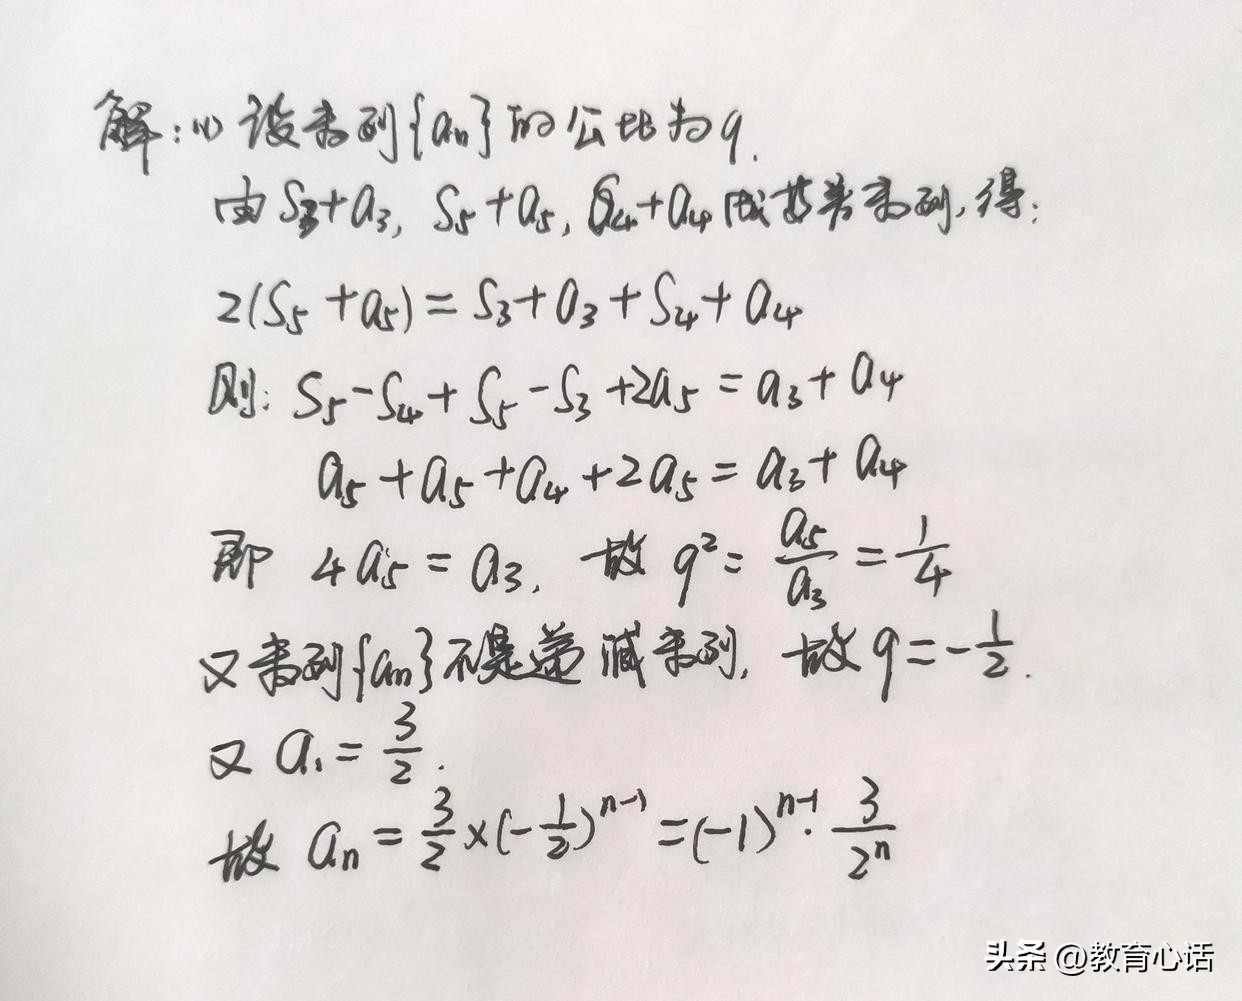 解：(1) 设数列{an}的公比为q.
由S3+a3, S5+a5, S4+a4成等差数列，得：
2(S5+a5)=S3+a3+S4+a4
则：S5-S4+S5-S3+2a5=a3+a4
a5+a5+a4+2a5=a3+a4
即 4a5=a3, 故 q²=a5/a3=1/4
又数列{an}不是递减数列，故q=-1/2.
又 a1=3/2.
故 an=3/2×(-1/2)^(n-1)=(-1)^(n-1)·3/2^n
头条 @教育心话